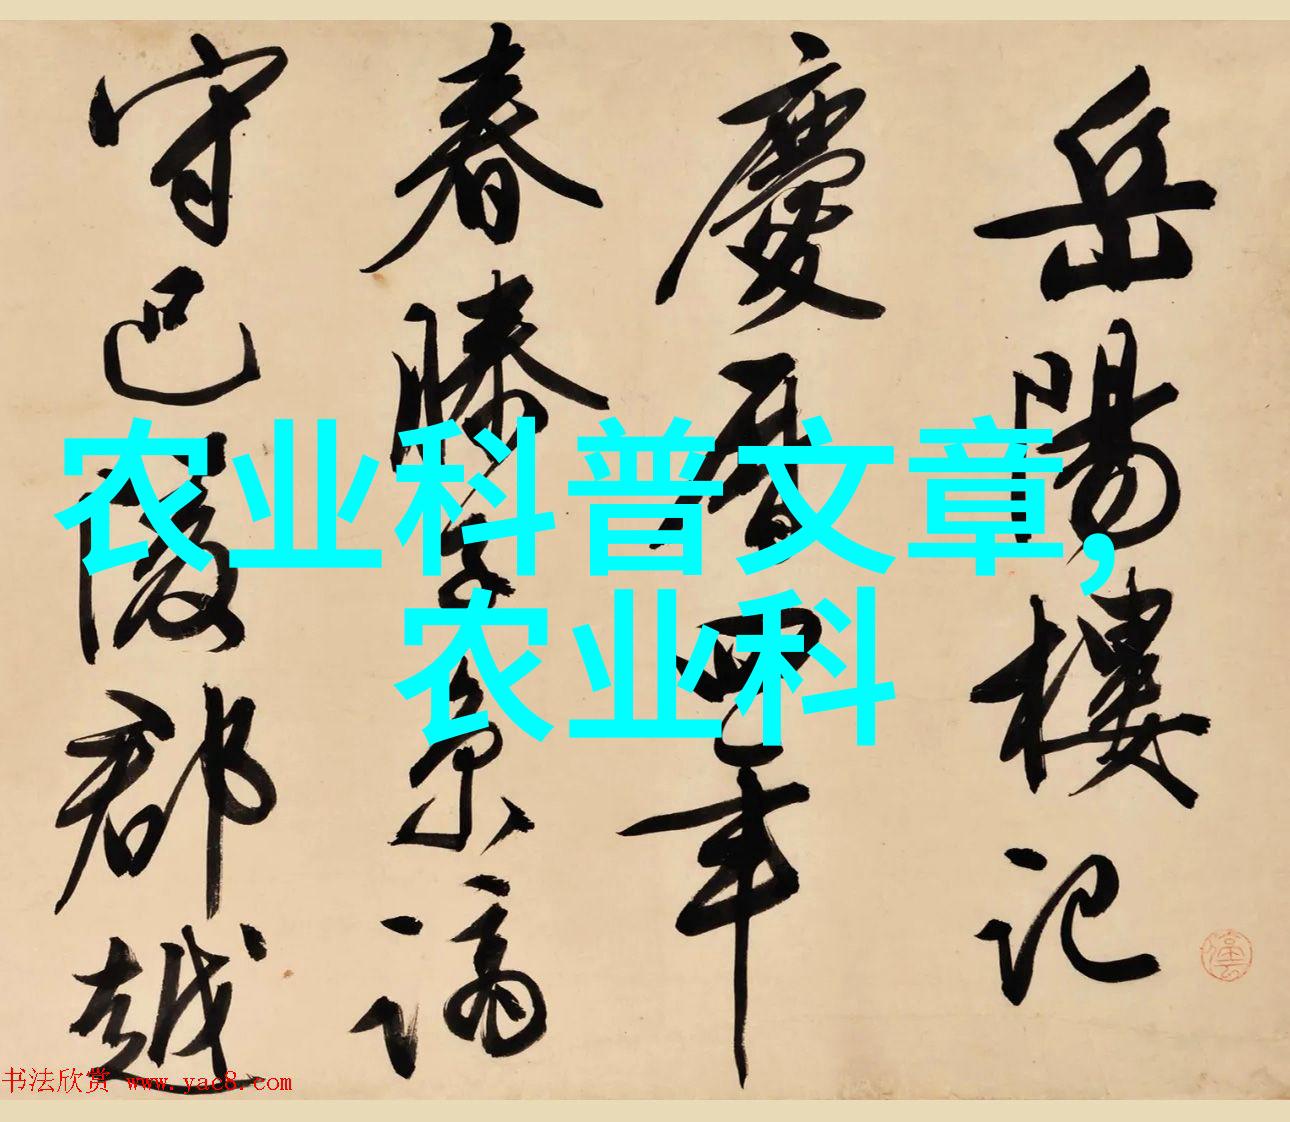 岳陽樓記
慶曆四年
春滕子京謫
守巴陵郡越
农业科普文章,
农业科
书法欣赏 www.yac8.com